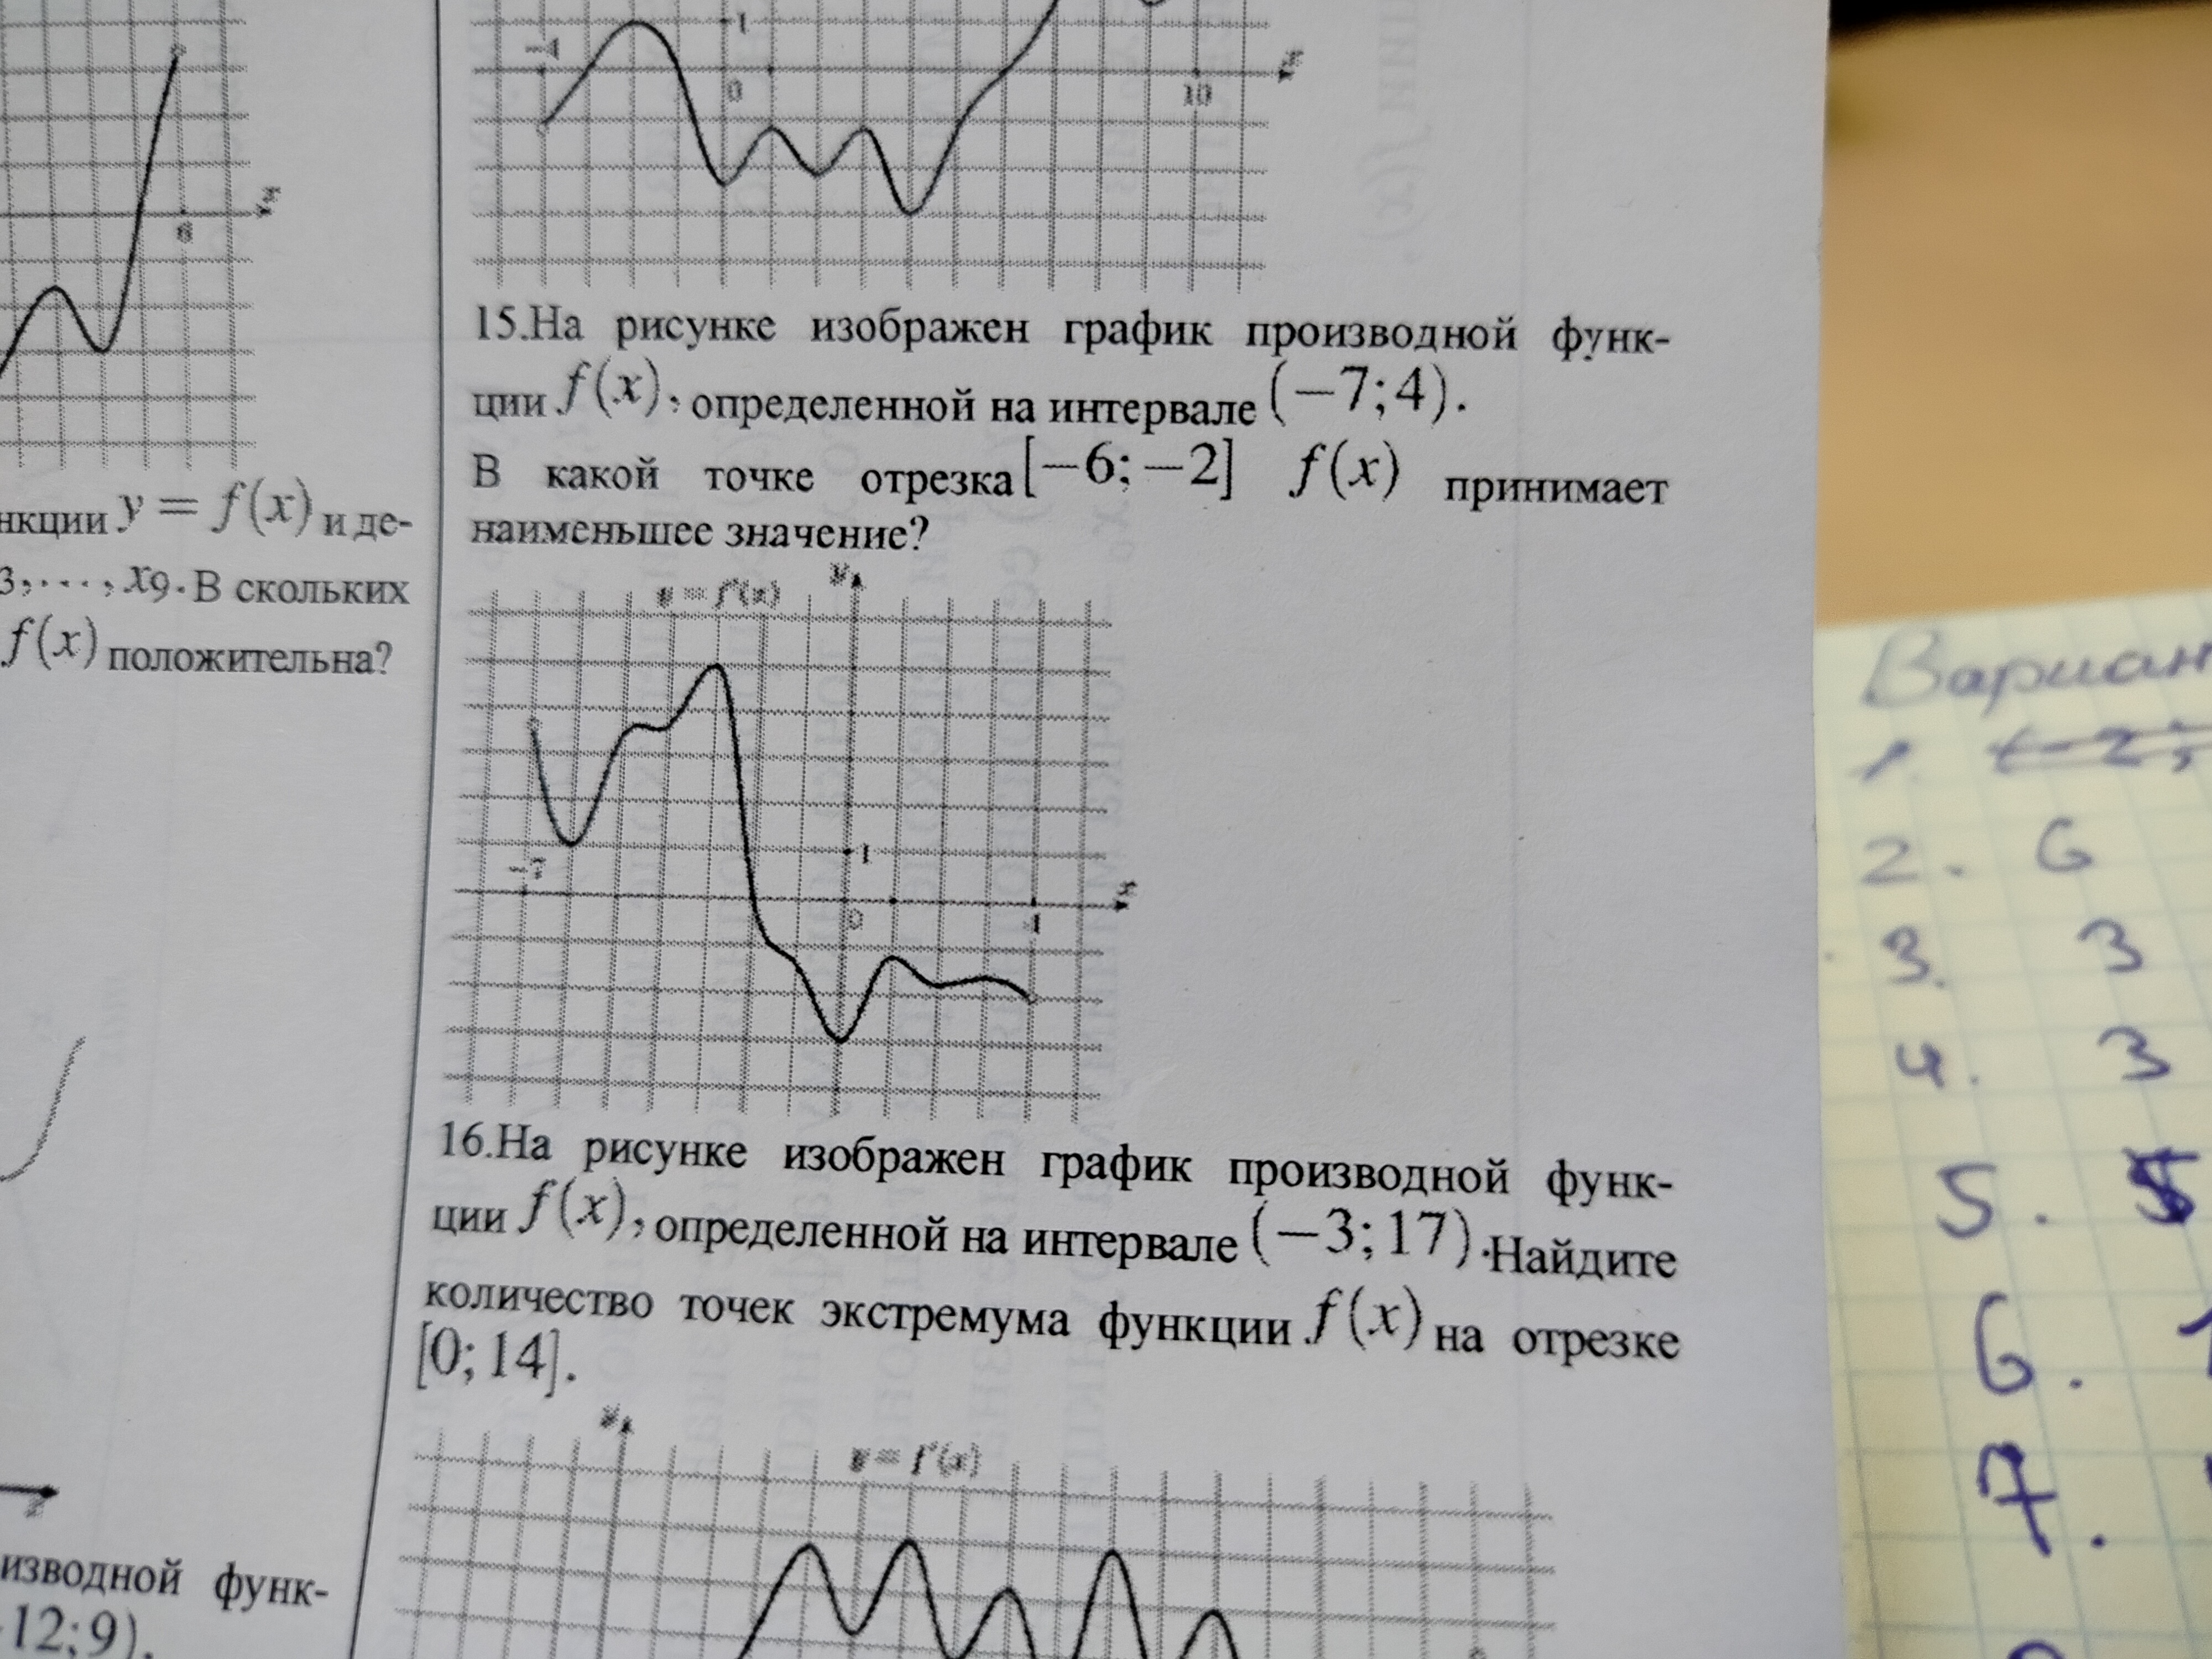 6
x
нкции y = f(x) и де-
3,..., x9. В скольких
f(x) положительна?
x
изводной функ-
12;9).
1
-4
0
10
x
15.На рисунке изображен график производной функ-
ции f(x), определенной на интервале (−7;4).
В какой точке отрезка [−6;−2] f(x) принимает
наименьшее значение?
y = f'(x)
y
1
-7
0
4
x
16.На рисунке изображен график производной функ-
ции f(x), определенной на интервале (−3;17).Найдите
количество точек экстремума функции f(x) на отрезке
[0;14].
y
y = f'(x)
Вариан
1. (-2;
2. 6
3. 3
4. 3
5. 5
6. 1
7.